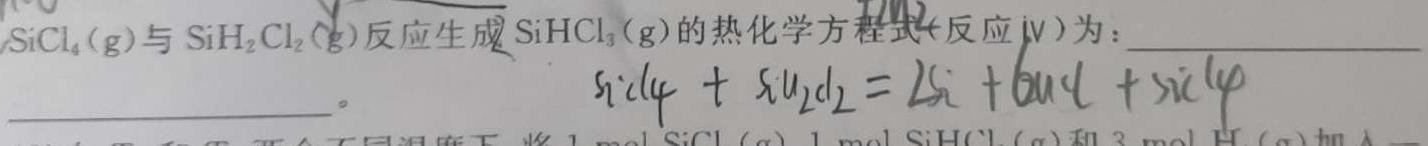 SiCl₄(g)与 SiH₂Cl₂(g)反应生成 SiHCl₃(g)的热化学方程式(反应ⅳ)为:
SiCl4 + SiH2Cl2 = 2Si + 6HCl + SiCl4
。
1 mol SiCl (g) 1 mol SiHCl (g)和 3 mol H (g)加入